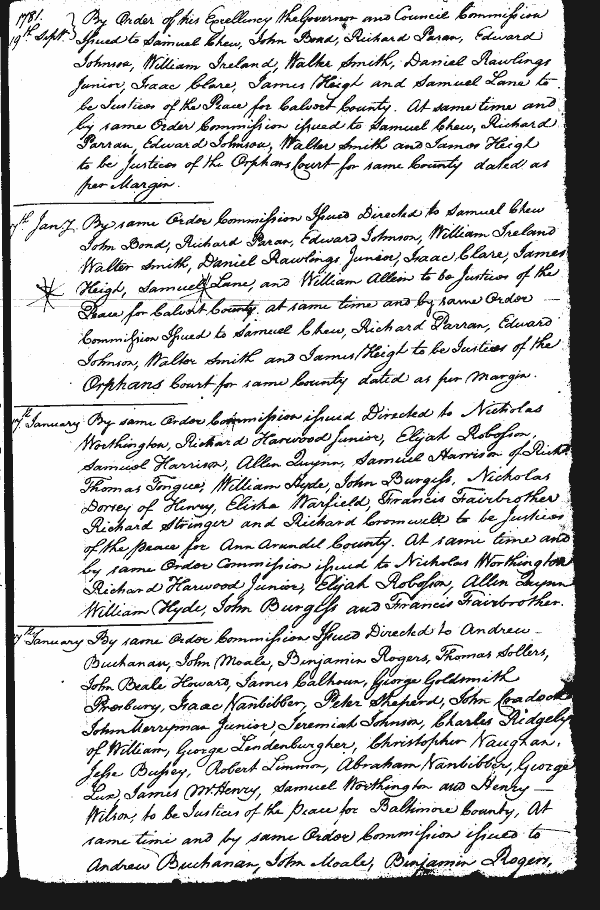 1781. } By Order of his Excellency the Governor and Council Commission
19th Sept. Issued to Samuel Chew, John Bond, Richard Paran, Edward
Johnson, William Ireland, Walter Smith, Daniel Rawlings
Junior, Isaac Clare, James Heigh and Samuel Lane to
be Justices of the Peace for Calvert County. At same time and
by same Order Commission issued to Samuel Chew, Richard
Parran, Edward Johnson, Walter Smith and James Heigh
to be Justices of the Orphans Court for same County dated as
per Margin.
7th Jany. By same Order Commission Issued Directed to Samuel Chew
John Bond, Richard Paran, Edward Johnson, William Ireland
Walter Smith, Daniel Rawlings Junior, Isaac Clare, James
Heigh, Samuel Lane, and William Allein to be Justices of the
Peace for Calvert County. at same time and by same Order
Commission Issued to Samuel Chew, Richard Parran, Edward
Johnson, Walter Smith and James Heigh to be Justices of the
Orphans Court for same County dated as per Margin.
17th January By same Order Commission issued Directed to Nicholas
Worthington, Richard Harwood Junior, Elijah Robosson,
Samuel Harrison, Allen Quynn, Samuel Harrison of Richd
Thomas Tongue, William Hyde, John Burgess, Nicholas
Dorsey of Henry, Elisha Warfield, Francis Fairbrother
Richard Stringer and Richard Cromwell to be Justices
of the peace for Ann Arundel County. At same time and
by same Order Commission issued to Nicholas Worthington
Richard Harwood Junior, Elijah Robosson, Allen Quynn
William Hyde, John Burgess and Francis Fairbrother.
7th January By same Order Commission Issued Directed to Andrew
Buchanan, John Moale, Benjamin Rogers, Thomas Sollers,
John Beale Howard, James Calhoun, George Goldsmith
Presbury, Isaac Vanbibber, Peter Sheperd, John Cradock
John Merryman Junior, Jeremiah Johnson, Charles Ridgely
of William, George Lendenburgher, Christopher Vaughan,
Jesse Bussey, Robert Lemmon, Abraham Vanbibber, George
Lux, James McHenry, Samuel Worthington and Henry
Wilson, to be Justices of the peace for Baltimore County, At
same time and by same Order Commission issued to
Andrew Buchanan, John Moale, Benjamin Rogers,